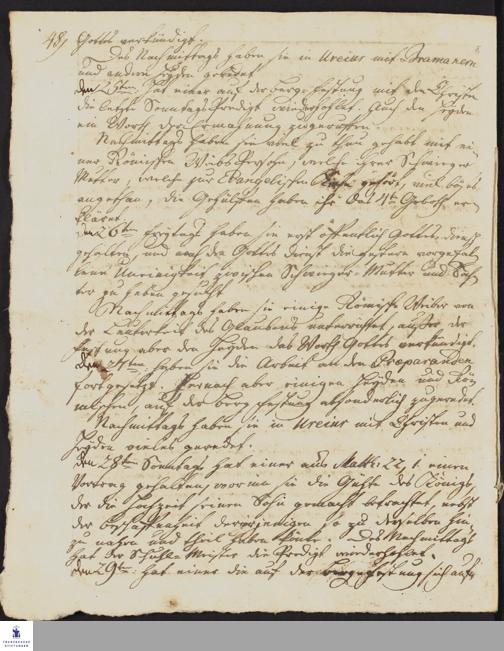 48, Gottes verkündigt.
Des Nachmittags haben sie in Ureiur mit Bramanern
und andern Heyden geredet.
den 25ten hat einer auf der Bergfestung mit den Christen
die letzte Sonntags Predigt wiederhohlet. Auch den Heyden
ein Wort der Ermahnung zugeruffen.
Nachmittags haben sie viel zu thun gehabt mit ei-
ner Römischen Weibs Person, welche ihrer Schwieger
Mutter, welche zur Evangelischen Kirche gehört, viel böses
angethan, die Gehülfen haben ihr das 4te Geboth er-
kläret.
den 26ten haben sie erst öffentlich Gottes dienst
gehalten, und nach dem Gottes dienst die
Uneinigkeit zwischen Schwieger-Mutter und Toch-
ter zu heben gesucht.
Nachmittags haben sie einige Römische Weiber von
der Lauterkeit des Glaubens unterrichtet, auf der
Festung aber den Heyden das Wort Gottes verkündigt.
den 27ten haben sie die Arbeit an den Præparanden
fortgesetzt. Hernach aber einigen Heyden und Rö-
mischen auf der Berg festung absonderlich zugeredet.
Nachmittags haben sie in Ureiur mit Christen und
Heyden vieles geredet.
den 28ten Sonntags hat einer aus Matth: 22, 1. einen
Vortrag gehalten, worinn sie die Güte des Königs
der die Hochzeit seinem Sohn gemacht betrachtet, nebst
der Beschaffenheit derjenigen so zu derselben sich
zu nahen und theil haben . Des Nachmittags
hat der Schul Meister die Predigt wiederhohlet.
den 29ten: hat einer die auf der Bergfestung sich auf-
FRANCKESCHE
STIFTUNGEN